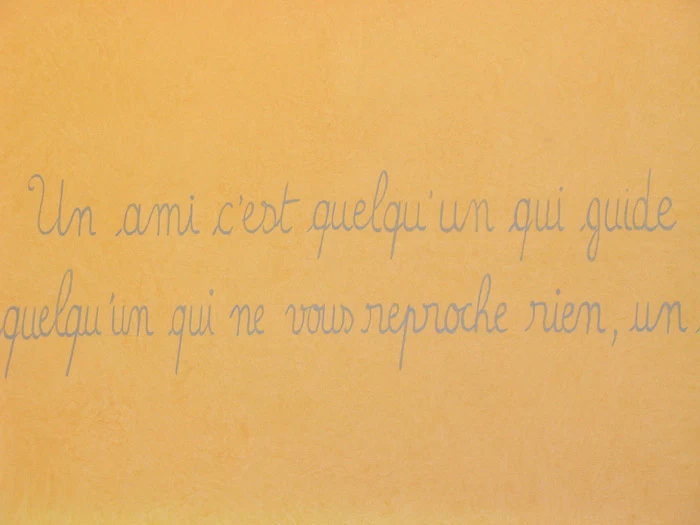 Un ami c'est quelqu'un qui guide
quelqu'un qui ne vous reproche rien, un